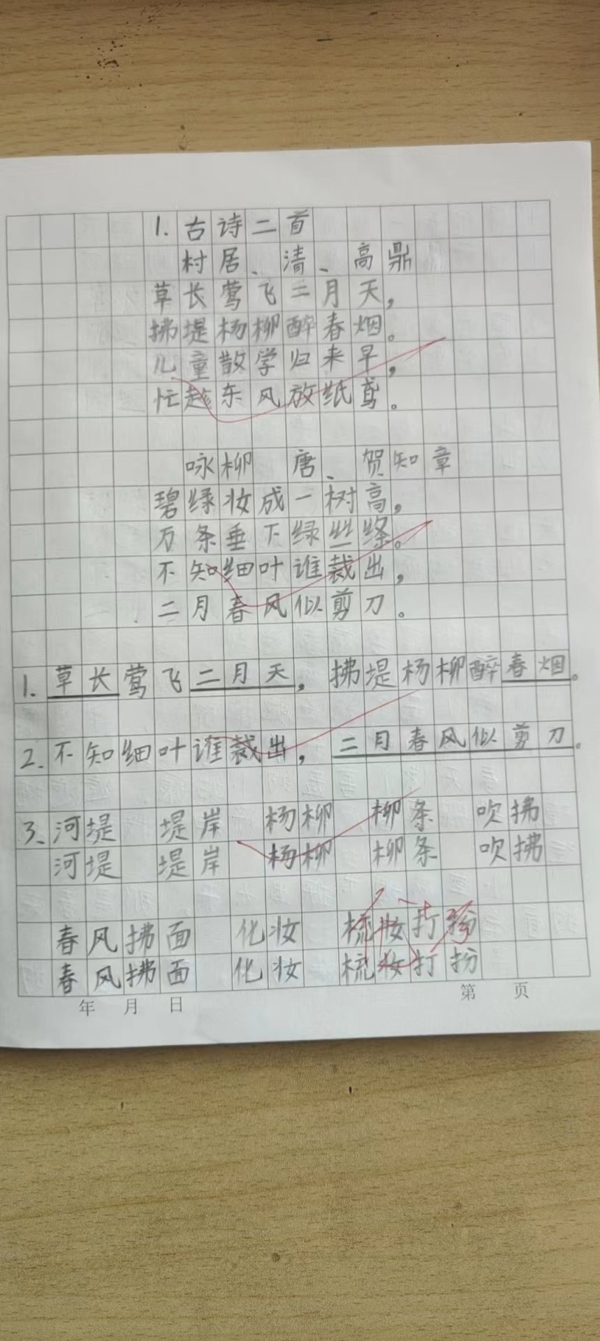 1. 古诗二首
村居、清、高鼎
草长莺飞二月天，
拂堤杨柳醉春烟。
儿童散学归来早，
忙趁东风放纸鸢。
咏柳 唐、贺知章
碧绿妆成一树高，
万条垂下绿丝绦。
不知细叶谁裁出，
二月春风似剪刀。
1. 草长莺飞二月天，拂堤杨柳醉春烟。
2. 不知细叶谁裁出，二月春风似剪刀。
3. 河堤 堤岸 杨柳 柳条 吹拂
河堤 堤岸 杨柳 柳条 吹拂
春风拂面 化妆 梳妆打扮
春风拂面 化妆 梳妆打扮
年 月 日 第 页